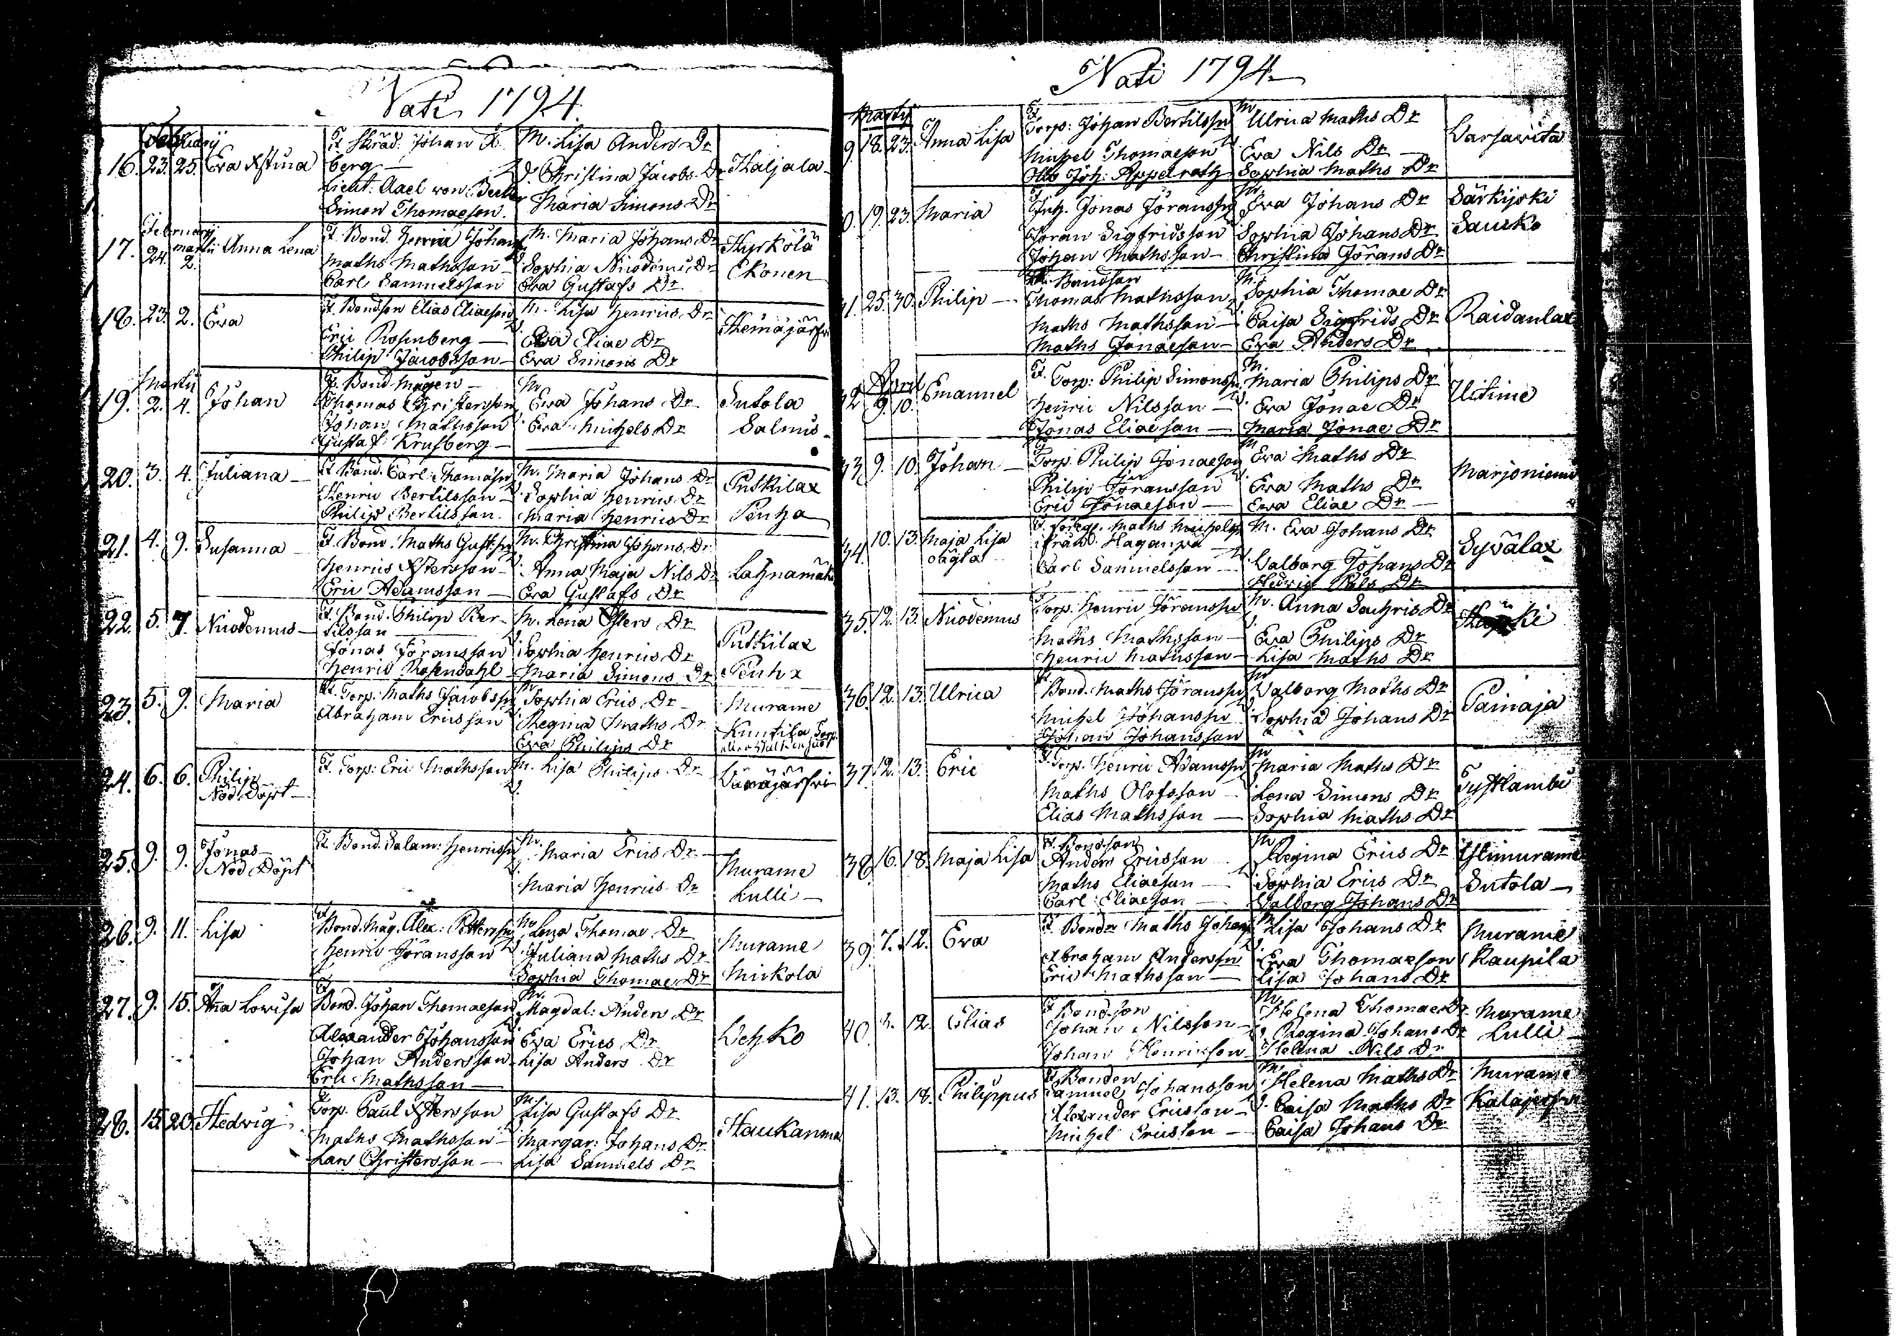 Nati 1794.
February
16. 23. 25. Eva Xstina
F. Skräd. Johan
berg
Simon Thomaeson.
M. Lisa Anders Dr
Christina Jacobs Dr
Maria Simons Dr
Haljala
February Martii
17. 24. 2. Anna Lena
F. Bond. Henric Johans
Maths Mathsson
Carl Samuelsson
M. Maria Johans Dr
Sophia Nicodemi Dr
Eva Gustafs Dr
Hyrkölä
Ekonen
18. 23. 2. Eva
F. Bondson Elias Eliaeson
Eric Rosenberg
Philip Jacobsson
M. Lisa Henrics Dr
Eva Eliae Dr
Eva Simons Dr
Kemäjärfvi
Martii
19. 2. 4. Johan
F. Bond. mågen
Thomas Christersson
Johan Mathsson
Gustaf Krusberg
M.
Eva Johans Dr
Eva Michels Dr
Sutola
Salmis
20. 3. 4. Juliana
F. Bond. Carl Thomason
Henric Bertilsson
Philip Bertilsson
M. Maria Johans Dr
Sophia Henrics Dr
Maria Henrics Dr
Putkilax
Penha
21. 4. 9. Susanna
F. Bond. Maths Gustfsn
Henric Xstersson
Eric Adamsson
M. Christina Johans Dr
Anna Maja Nils Dr
Eva Gustafs Dr
22. 5. 7. Nicodemus
F. Bond. Philip Ber-
tilsson
Jonas Göransson
Henric Rosendahl
M. Lena Dr
Sophia Henrics Dr
Maria Simons Dr
Putkilax
Penha
23. 5. 9. Maria
F. Torp. Maths Jacobsson
Abraham Ericsson
M. Sophia Erics Dr
Regina Maths Dr
Eva Philips Dr
Murame
Kuntila Torp
24. 6. 6. Philip
Nöd Döpt
F. Torp: Eric Mathsson
M. Lisa Philips Dr
25. 9. 9. Jonas
Nöd Döpt
F. Bond. Salam: Henricsson
M. Maria Erics Dr
Maria Henrics Dr
Murame
Lulli
26. 9. 11. Lisa
F. Bond. Måg. Alex: Pettersson
Henric Göransson
M. Lena Thomae Dr
Juliana Maths Dr
Sophia Thomae Dr
Murame
Mickola
27. 9. 15. Ana Lovisa
F. Bond. Johan Thomaeson
Alexander Johansson
Johan Andersson
Eric Mathsson
M. Magdal: Anders Dr
Eva Erics Dr
Lisa Anders Dr
Lehko
28. 15. 20. Hedvig
F. Torp. Paul Xstersson
Maths Mathsson
Lars Christersson
M. Lisa Gustafs Dr
Margar: Johans Dr
Lisa Samuels Dr
Haukanma
Nati 1794
Martii
9. 18. 23. Anna Lisa
F. Torp: Johan Bertilsson
Michel Thomaeson
Otto Joh: Appelroth
M. Ulrica Maths Dr
Eva Nils Dr
Sophia Maths Dr
Varsavita
0. 19. 23. Maria
F. Jonas Göransson
Göran Sigfridsson
Johan Mathsson
M. Eva Johans Dr
Sophia Johans Dr
Christina Görans Dr
Särkijoki
Saucko
1. 25. 30. Philip
F. Bondson
Thomas Mathsson
Maths Mathsson
Maths Jonaeson
M. Sophia Thomae Dr
Caisa Sigfrids Dr
Eva Anders Dr
Raidanlax
April
32. 9. 10. Emanuel
F. Torp: Philip Simonsson
Henric Nilsson
Jonas Eliaeson
M. Maria Philips Dr
Eva Jonae Dr
Maria Jonae Dr
33. 9. 10. Johan
F. Torp. Philip Jonaeson
Philip Göransson
Eric Jonaeson
M. Eva Maths Dr
Eva Maths Dr
Eva Eliae Dr
Marjoniemi
34. 10. 13. Maja Lisa
oägta
Carl Samuelsson
M. Eva Johans Dr
Valborg Johans Dr
Hedvig Nils Dr
Syvälax
35. 12. 13. Nicodemus
Torp. Henric Göransson
Maths Mathsson
Henric Mathsson
M. Anna Zachris Dr
Eva Philips Dr
Lisa Maths Dr
36. 12. 13. Ulrica
F. Bond. Maths Göransson
Michel Johansson
Johan Johansson
M. Valborg Maths Dr
Sophia Johans Dr
Painaja
37. 12. 13. Eric
F. Torp. Henric Adamsson
Maths Olofsson
Elias Mathsson
M. Maria Maths Dr
Lena Simons Dr
Sophia Maths Dr
38. 16. 18. Maja Lisa
F. Bondson
Anders Ericsson
Maths Eliaeson
Carl Eliaeson
M. Regina Erics Dr
Sophia Erics Dr
Valborg Johans Dr
Ylimurame
Sutola
39. 7. 12. Eva
F. Bonde Maths Johans
Abraham Andersson
Eric Mathsson
M. Lisa Johans Dr
Eva Thomaeson
Lisa Johans Dr
Murame
Kaupila
40. 12. Elias
F. Bondson
Johan Nilsson
Johan Henricsson
M. Helena Thomae Dr
Regina Johans Dr
Helena Nils Dr
Murame
Lulli
41. 13. 18. Philippus
F. Bonden
Samuel Johansson
Alexander Ericsson
Michel Ericsson
M. Helena Maths Dr
Caisa Maths Dr
Caisa Johans Dr
Murame